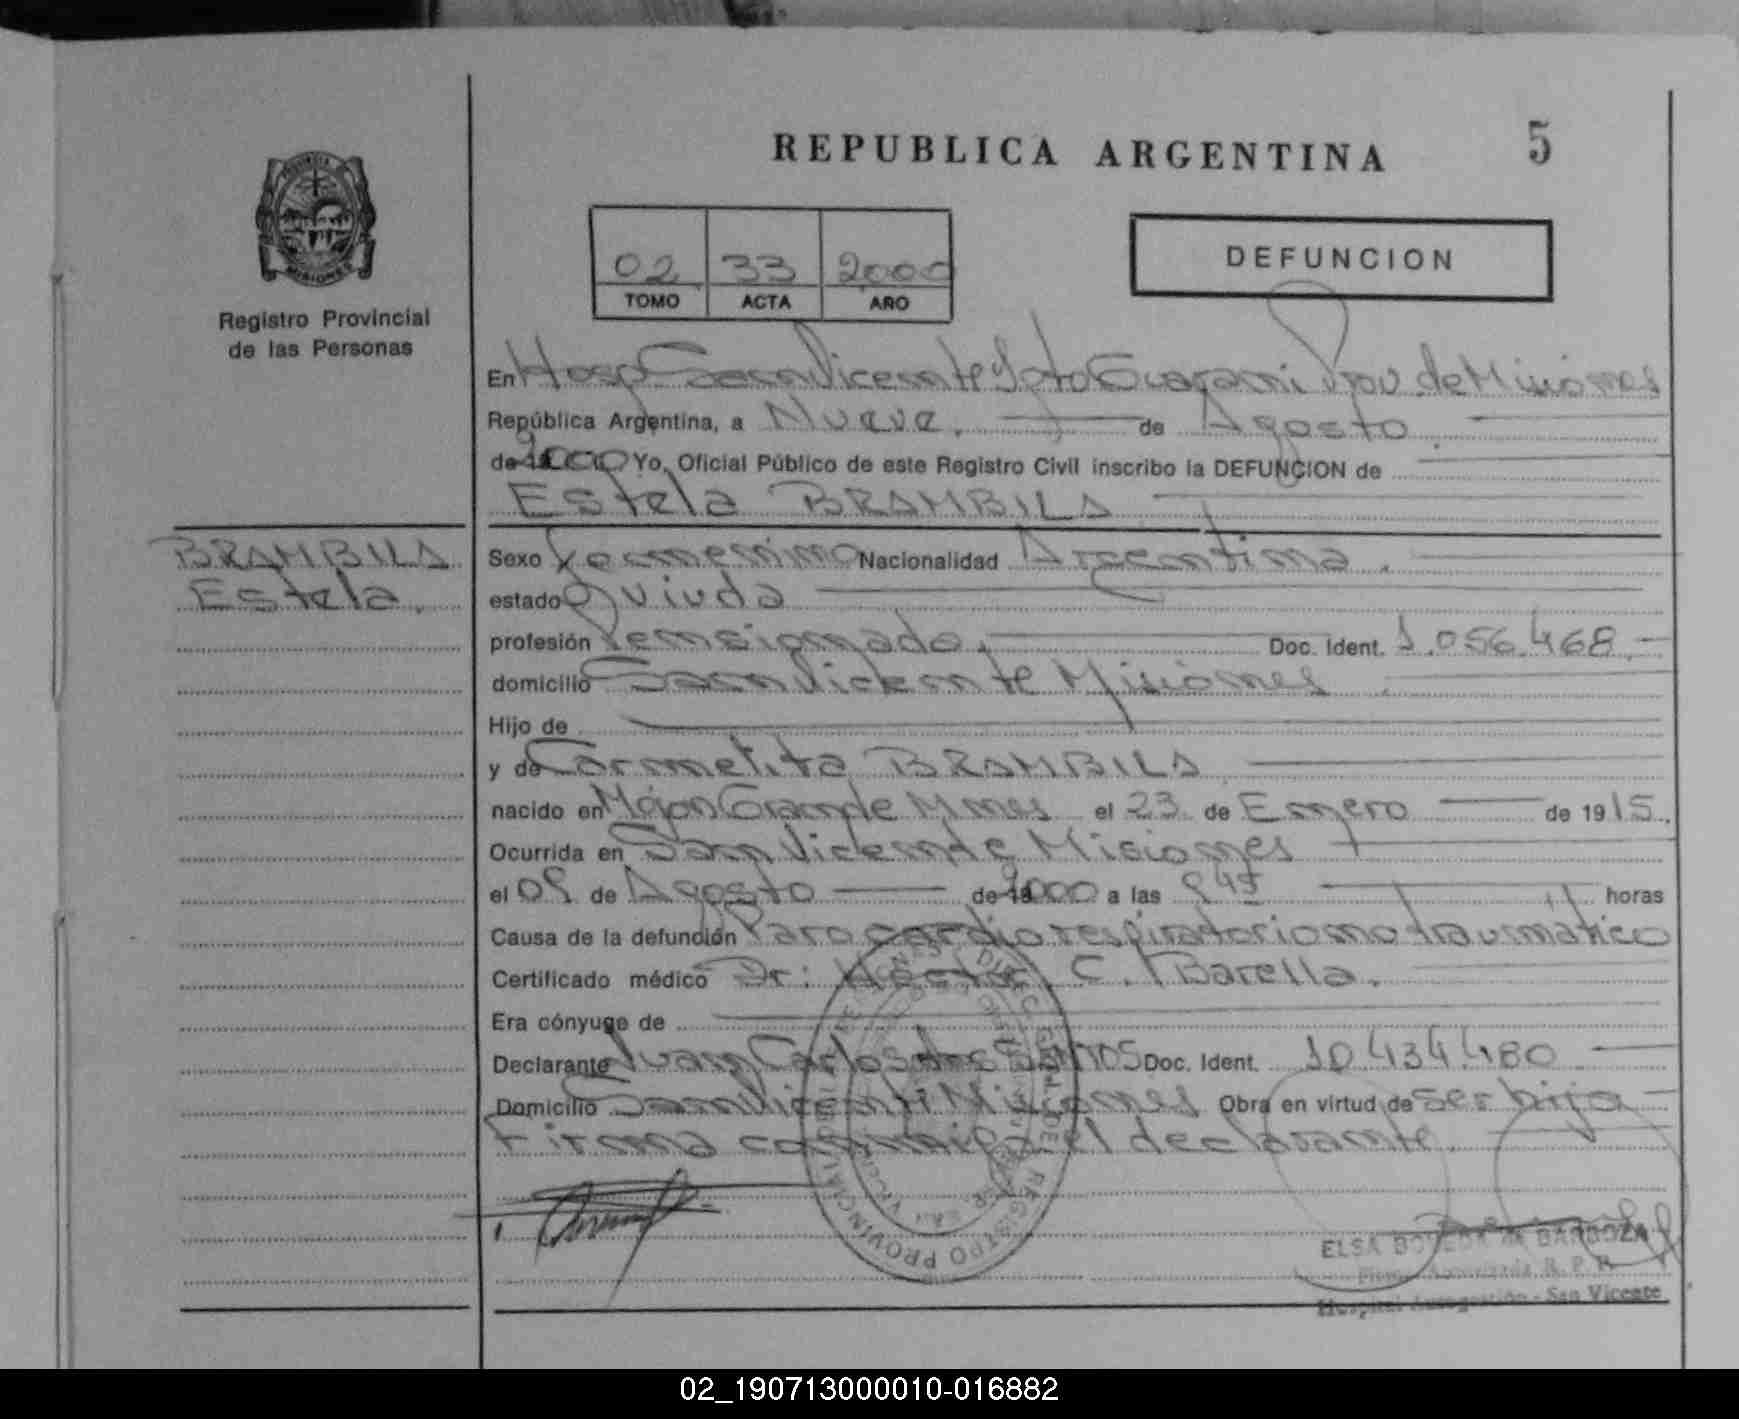 REPUBLICA ARGENTINA
5
02 33 2000
TOMO ACTA AÑO
DEFUNCION
PROVINCIA
MISIONES
Registro Provincial
de las Personas
En Hosp San Vicente Dpto Guarani Prov. de Misiones
República Argentina, a Nueve. de Agosto.
de 2000 Yo, Oficial Público de este Registro Civil inscribo la DEFUNCION de
Estela BRAMBILA
BRAMBILA
Estela.
Sexo Femenino Nacionalidad Argentina.
estado Viuda
profesión Pensionado. Doc. Ident. 1.056.468.
domicilio San Vicente Misiones
Hijo de
y de Carmelita BRAMBILA
nacido en Mojon Grande Mnes el 23 de Enero de 1915.
Ocurrida en San Vicente Misiones
el 09 de Agosto de 2000 a las 945 horas
Causa de la defunción Paro cardio respiratorio no traumático
Certificado médico Dr: Hector C. Barella.
Era cónyuge de
Declarante Juan Carlos dos Santos Doc. Ident. 10.434.480
Domicilio San Vicente Misiones Obra en virtud de ser hijo
Firma conmigo el declarante
REGISTRO PROVINCIAL
ELSA DE BARBOZA
Firma Autorizada R. P. P.
Hospital Autogestión - San Vicente
02_190713000010-016882